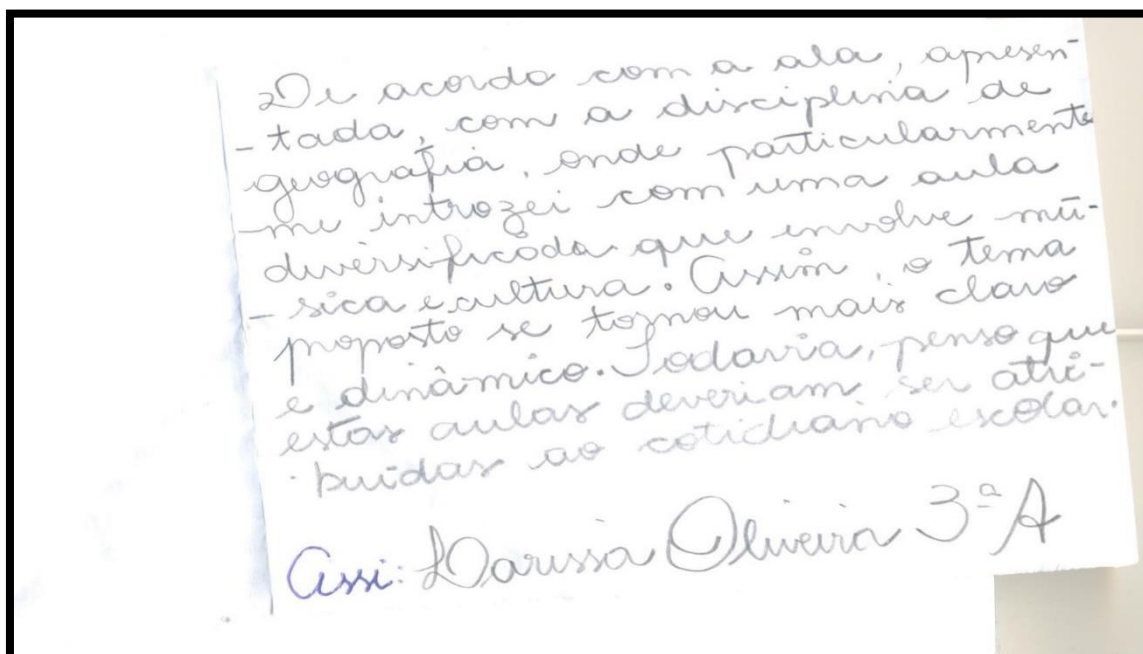 De acordo com a ala, apresen-
-tada, com a disciplina de
geografia, onde particularmente
me introzei com uma aula
diversificada que envolve mú-
-sica e cultura. Assim, o tema
proposto se tornou mais claro
e dinâmico. Todavia, penso que
estas aulas deveriam ser atri-
-buidas ao cotidiano escolar.
Assi: Larissa Oliveira 3ª A